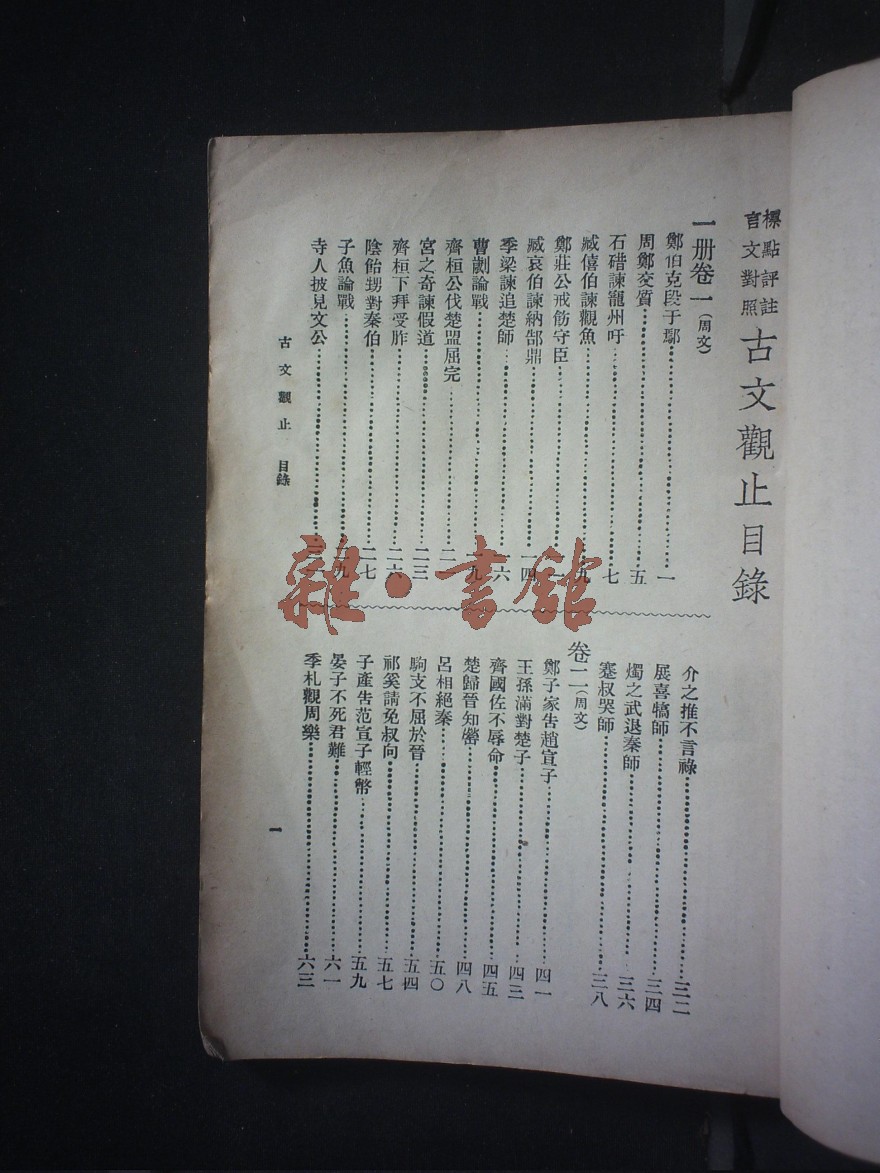 標點評註
言文對照
古文觀止目錄
一册卷一(周文)
鄭伯克段于鄢 一
周鄭交質 五
石碏諫寵州吁 七
臧僖伯諫觀魚 九
鄭莊公戒飭守臣
臧哀伯諫納郜鼎 一四
季梁諫追楚師 一六
曹劌論戰 一九
齊桓公伐楚盟屈完
宮之奇諫假道 二三
齊桓下拜受胙 二六
陰飴甥對秦伯 二七
子魚論戰 二九
寺人披見文公
介之推不言祿 三二
展喜犒師 三四
燭之武退秦師 三六
蹇叔哭師 三八
卷二(周文)
鄭子家告趙宣子 四一
王孫滿對楚子 四三
齊國佐不辱命 四五
楚歸晉知罃 四八
呂相絕秦 五〇
駒支不屈於晉 五四
祁奚請免叔向 五七
子產告范宣子輕幣 五九
晏子不死君難 六一
季札觀周樂 六三
古文觀止 目錄
一
雜·書館